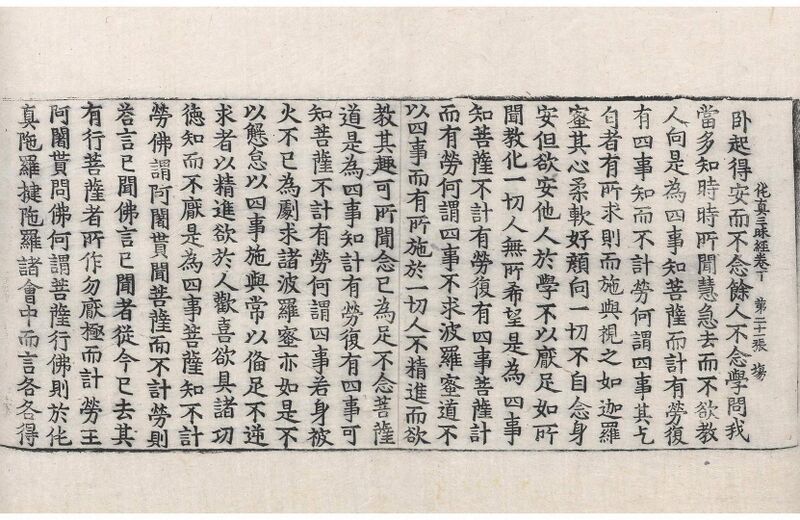 佗真三昧經卷下　第二十一張　場
臥起得安而不念餘人不念學問我
當多知時時所聞慧急去而不欲教
人向是為四事知菩薩而計有勞復
有四事知而不計勞何謂四事其乞
匃者有所求則而施與視之如迦羅
蜜其心柔軟好顏向一切不自念身
安但欲安他人於學不以厭足如所
聞教化一切人無所希望是為四事
知菩薩不計有勞復有四事菩薩計
而有勞何謂四事不求波羅蜜道不
以四事而有所施於一切人不精進而欲
教其趣可所聞念已為足不念菩薩
道是為四事知計有勞復有四事可
知菩薩不計有勞何謂四事若身被
火不已為劇求諸波羅蜜亦如是不
以懈怠以四事施與常以偹足不逆
求者以精進欲於人歡喜欲具諸功
德知而不厭是為四事菩薩知不計
勞佛謂阿闍貰聞菩薩而不計勞則
荅言已聞佛言已聞者從今已去其
有行菩薩者所作勿厭極而計勞王
阿闍貰問佛何謂菩薩行佛則於佗
真陁羅揵陁羅諸會中而言各各得